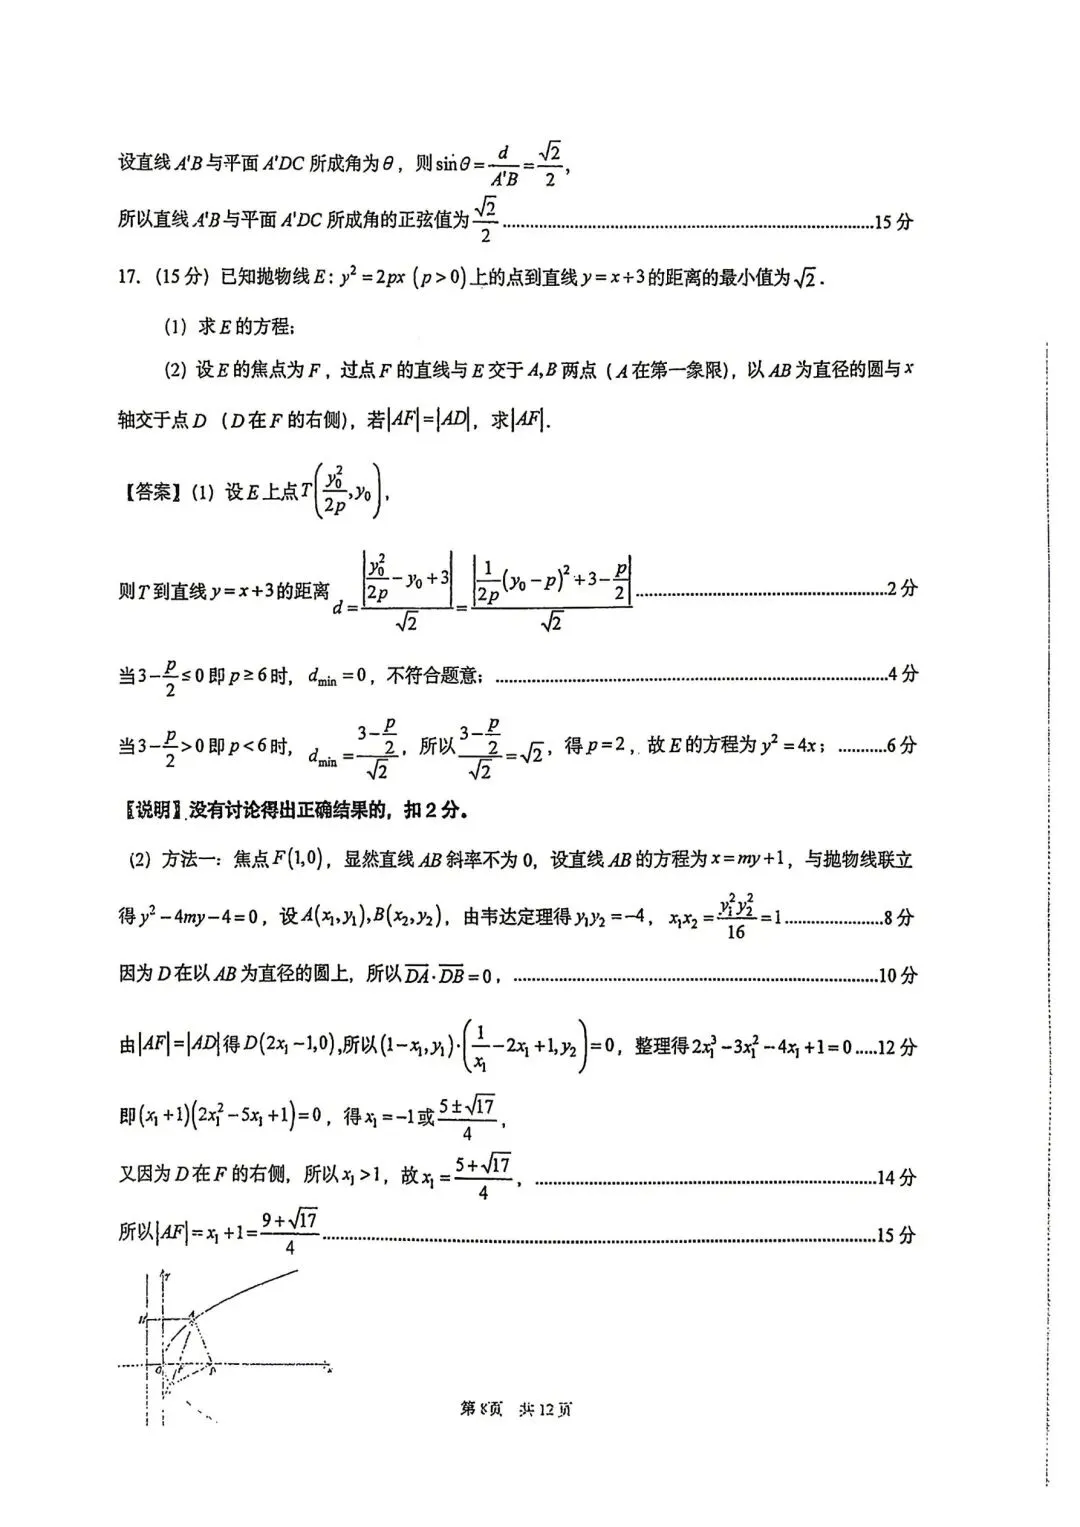 设直线 A'B 与平面 A'DC 所成角为 θ，则 sinθ = d/A'B = √2/2，
所以直线 A'B 与平面 A'DC 所成角的正弦值为 √2/2 ……15 分
17．(15 分) 已知抛物线 E: y² = 2px (p > 0) 上的点到直线 y = x + 3 的距离的最小值为 √2．
(1) 求 E 的方程;
(2) 设 E 的焦点为 F，过点 F 的直线与 E 交于 A,B 两点 (A 在第一象限)，以 AB 为直径的圆与 x
轴交于点 D (D 在 F 的右侧)，若 |AF| = |AD|，求 |AF|．
【答案】(1) 设 E 上点 T(y₀²/2p, y₀)，
则 T 到直线 y = x + 3 的距离 d = |y₀²/2p − y₀ + 3|/√2 = |1/2p (y₀ − p)² + 3 − p/2|/√2 ……2 分
当 3 − p/2 ≤ 0 即 p ≥ 6 时，d_min = 0，不符合题意; ……4 分
当 3 − p/2 > 0 即 p < 6 时，d_min = (3 − p/2)/√2，所以 (3 − p/2)/√2 = √2，得 p = 2，故 E 的方程为 y² = 4x； ……6 分
【说明】没有讨论得出正确结果的，扣 2 分。
(2) 方法一：焦点 F(1,0)，显然直线 AB 斜率不为 0，设直线 AB 的方程为 x = my + 1，与抛物线联立
得 y² − 4my − 4 = 0，设 A(x₁, y₁), B(x₂, y₂)，由韦达定理得 y₁y₂ = −4，x₁x₂ = y₁²y₂²/16 = 1 ……8 分
因为 D 在以 AB 为直径的圆上，所以 DA · DB = 0， ……10 分
由 |AF| = |AD| 得 D(2x₁ − 1, 0),所以 (1 − x₁, y₁) · (1/x₁ − 2x₁ + 1, y₂) = 0，整理得 2x₁³ − 3x₁² − 4x₁ + 1 = 0 ……12 分
即 (x₁ + 1)(2x₁² − 5x₁ + 1) = 0，得 x₁ = −1 或 (5 ± √17)/4，
又因为 D 在 F 的右侧，所以 x₁ > 1，故 x₁ = (5 + √17)/4， ……14 分
所以 |AF| = x₁ + 1 = (9 + √17)/4 ……15 分
第 8页 共 12 页